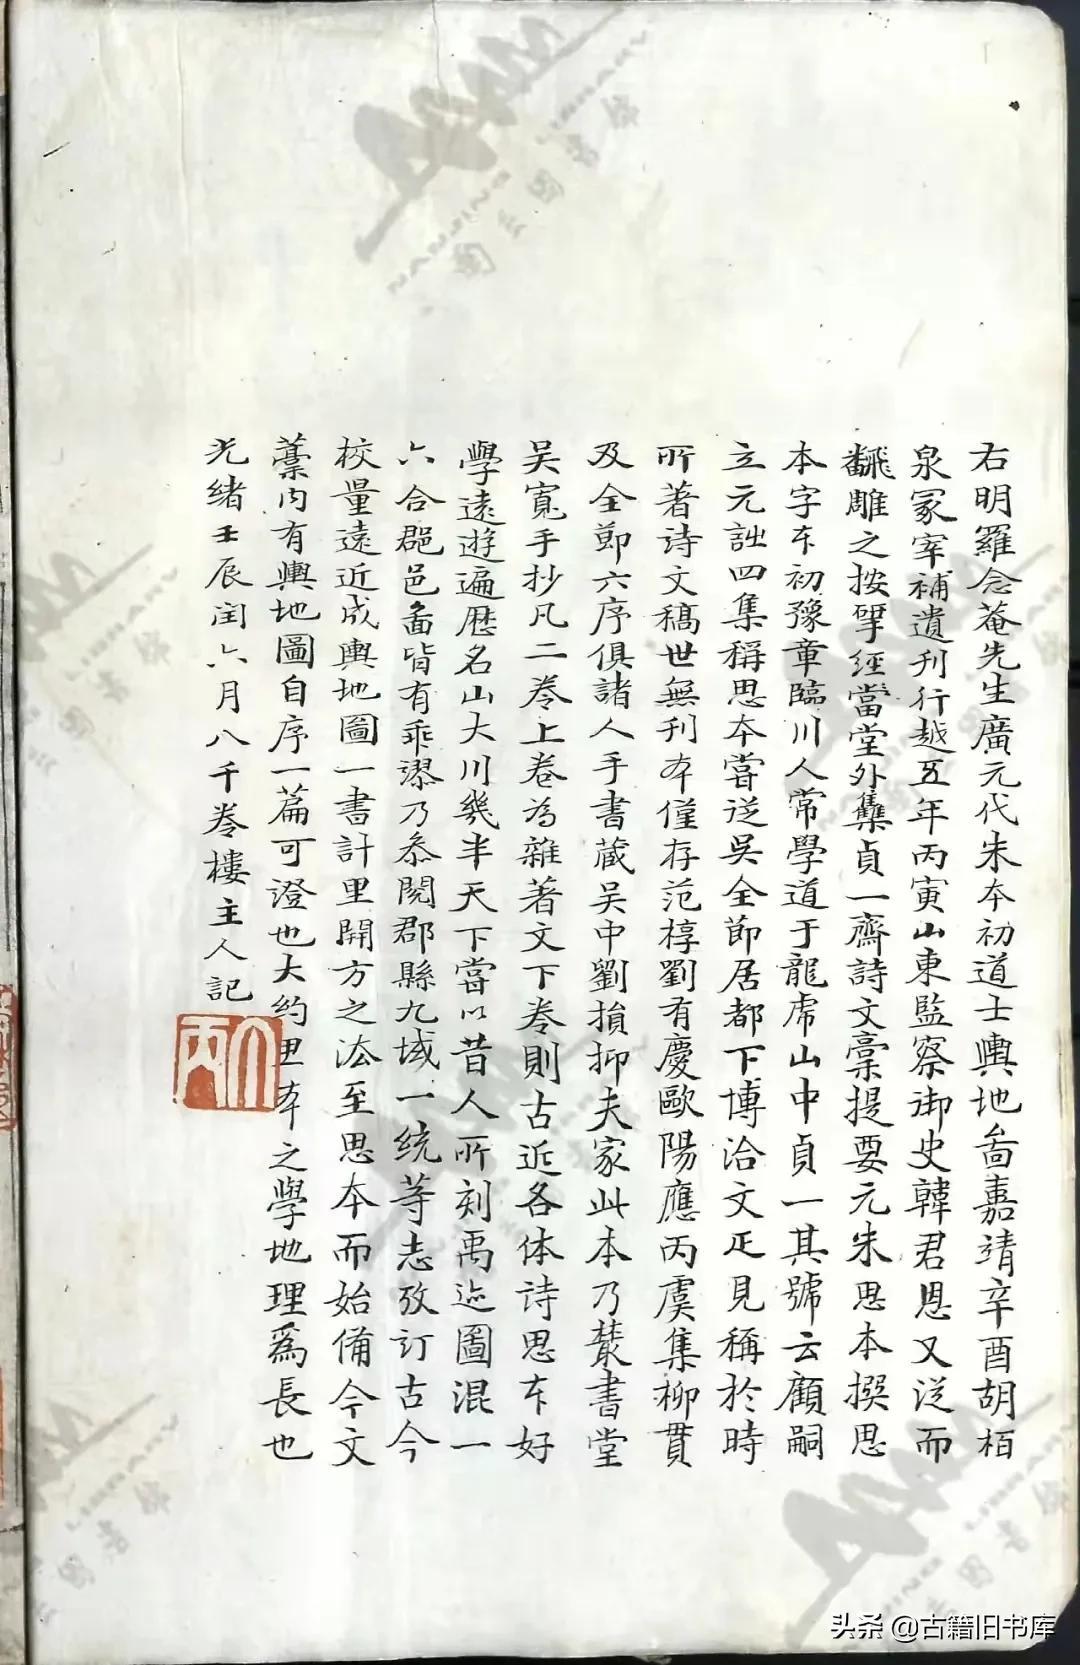 右明羅念菴先生廣元代朱夲初道士輿地啚嘉靖辛酉胡栢
泉冢宰補遺刊行越五年丙寅山東監察御史韓君恩又從而
翻雕之按揅經當堂外集貞一齋詩文槀提要元朱思本撰思
本字夲初豫章臨川人常學道于龍虎山中貞一其號云顧嗣
立元詩四集稱思夲嘗從吳全節居都下博洽文疋見稱於時
所著詩文稿世無刊夲僅存范梈劉有慶歐陽應丙虞集柳貫
及全節六序俱諸人手書藏吳中劉損抑夫家此本乃叢書堂
吴寬手抄凡二卷上卷為雜著文下卷則古近各体詩思夲好
學遠遊遍歷名山大川幾半天下嘗以昔人所刻禹迹圖混一
六合郡邑啚皆有乖謬乃叅閱郡縣九域一統等志攷訂古今
校量遠近成輿地圖一書計里開方之法至思夲而始備今文
藁内有輿地圖自序一篇可證也大約思夲之學地理爲長也
光緒壬辰閏六月八千卷樓主人記
頭条@古籍旧书库